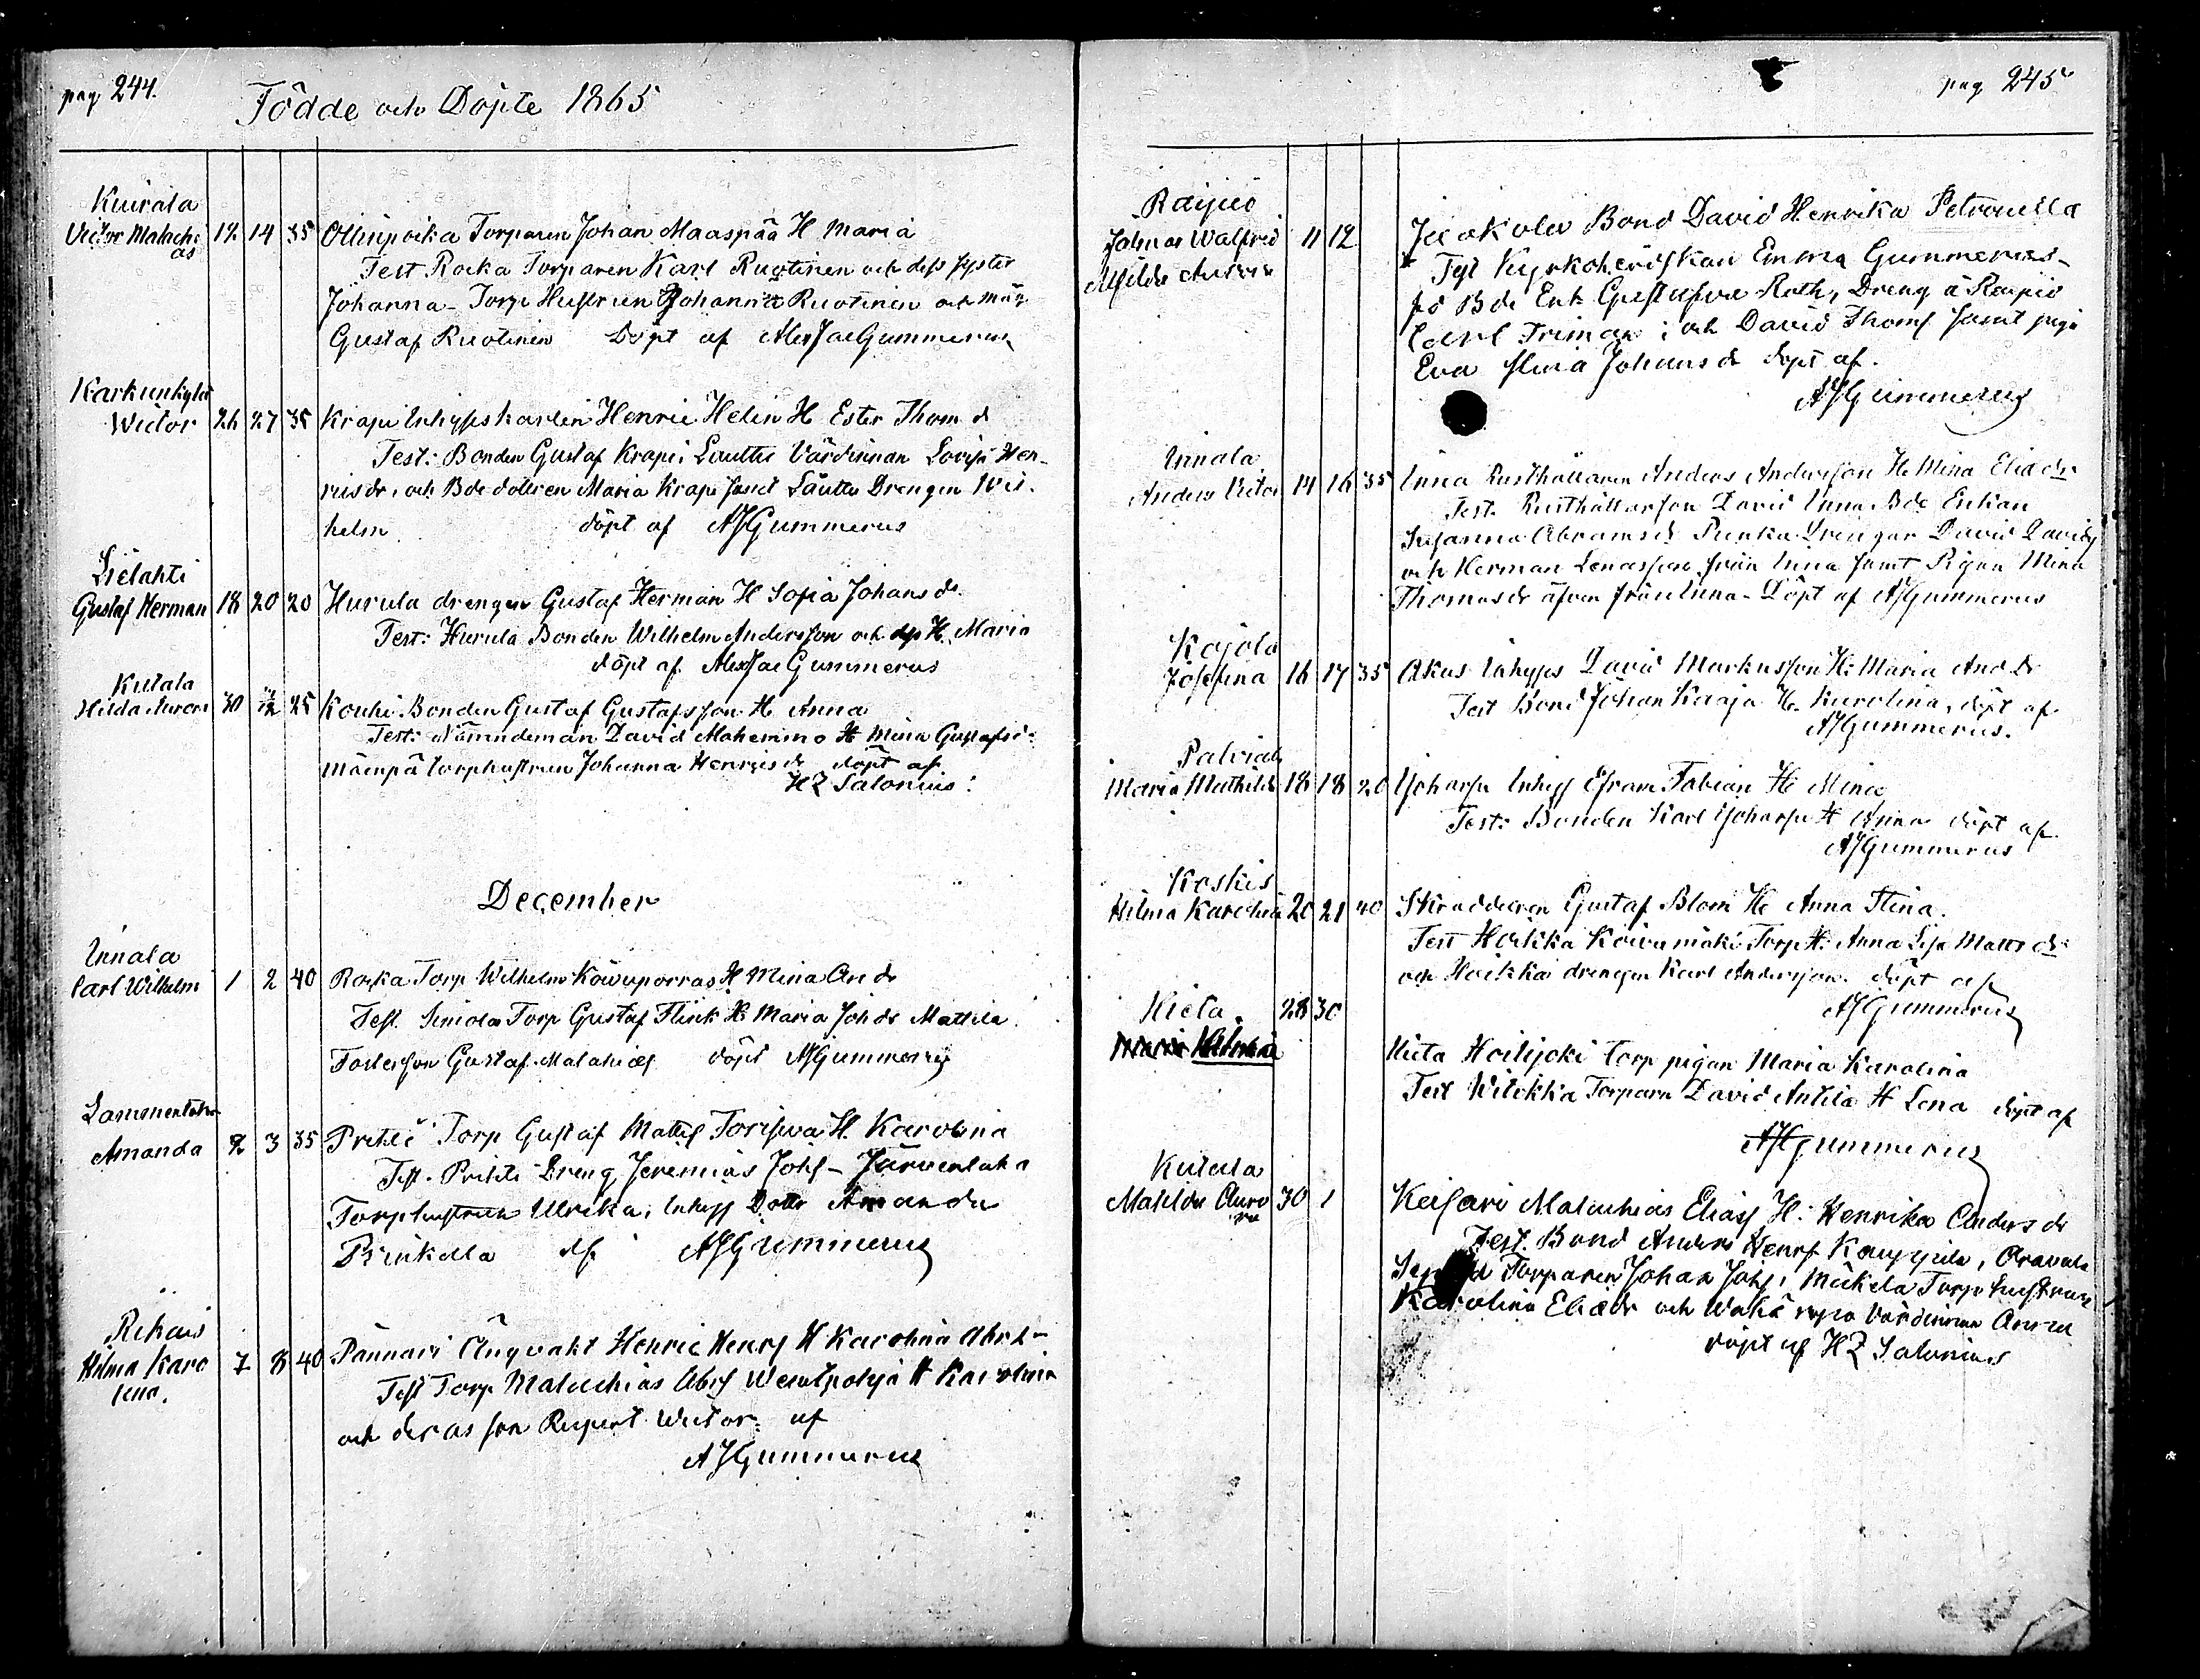 pag 244.
Födde och Döpte 1865
Kuirala
Victor Malachi
as
12 14 35 Ollinpoika Torparen Johan Maaspää H Maria
Test Rocka Torparen Karl Ruotinen och dess syster
Johanna - Torp Hustrun Johanna Ruotinen och
Gustaf Ruotinen Döpt af Alex Jac Gummerus
Karkunkylä
Wictor 26 27 35 Krapi Inhyseskarlen Henric Helin H Ester Thom d
Test: Bonden Gustaf Krapi, Lauttu Värdinnan Lovisa Hen-
risdr, och Bde dottren Maria Krapi samt Lauttu Drengen Wil-
helm döpt af AJGummerus
Lielahti
Gustaf Herman 18 20 20 Hurula drengen Gustaf Herman H Sofia Johans dr
Test: Hurula Bonden Wilhelm Andersson och dess H. Maria
döpt af Alex Jac Gummerus
Kutala
Hilda Aurora 30 25 Kouhi Bonden Gustaf Gustafsson H Anna
Test: Nämndeman David Mahenmo H Mina Gustafs
Mäenpä torphustrun Johanna Henrics dr döpt af
HZ Salonius
December
Innala
Carl Wilhelm 1 2 40 Rocka Torp Wilhelm Koivuporras H Mina An dr
Test. Simola Torp Gustaf Flink H Maria Joh dr Mattila
Fosterson Gustaf Malahias döpt AJGummerus
Lammentaka
Amanda 2 3 35 Prihti Torp Gustaf Matts Toriseva H. Karolina
Test. Prihti Dreng Jeremias Johs - Järventaka
Torphustrun Ulrika, Inhys Dotter Amanda
Prinkala af AJGummerus
Rikais
Hilma Karo
lina.
7 8 40 Pännäri Ängvakt Henric Henrs H Karolina Abr d
Test Torp Malachias Abrs Wesalpohja H Karolina
och deras son Rupert Wictor. af
AJGummerus
pag 245
Raipiö
Jalmar Walfrid
Alfilda Aurora
11 12 Jaakola Bond David Henrika Petronella
Test Kyrkoherdskan Emma Gummerus-
Bde Enk Gustafva Roth, Dreng å Raipiö
Carl Friman; och David Thoms samt piga
Eva Stina Johans dr döpt af.
AJGummerus
Innala
Anders Victor 14 16 35 Inna Rusthållaren Anders Andersson H. Mina Elia dr
Test. Rusthållarson David Inna Bde Enkan
Susanna Abrams dr Punka Drengar David Davids
och Herman Lenasson från Inna samt Pigan Mina
Thomas dr äfven från Inna - Döpt af AJGummerus
Kojola
Josefina 16 17 35 Akus Inhyses David Markusson H. Maria And dr
Test Bond Johan Kaaja H. Karolina, döpt af
AJGummerus.
Palviala
Maria Mathilda 18 18 20 Yjoharju Inhys Efram Fabian H. Mina
Test: Bonden Karl Yjoharju H Anna döpt af
AJGummerus
Koskis
Hilma Karolina 20 21 40 Skräddaren Gustaf Blom H. Anna Stina.
Test Hoikka Koivumäki Torp H. Anna Lisa Matts dr
och Hoikka drengen Karl Andersson. döpt af
AJGummerus
Hieta.
28 30
Hieta Heilijoki torp pigan Maria Karolina
Test Witikka Torparn David Antila H Lena döpt af
AJGummerus
Kutala
Matilda Auro
ra
30 1 Keisari Malachias Eliass H. Henrika Anders dr
Test. Bond Anders Henrs Kauppila, Oravala
Torparen Johan Johs, Mickela Torp hustrun
Karolina Elia dr och Wakä Värdinnan Anna
döpt af HZ Salonius